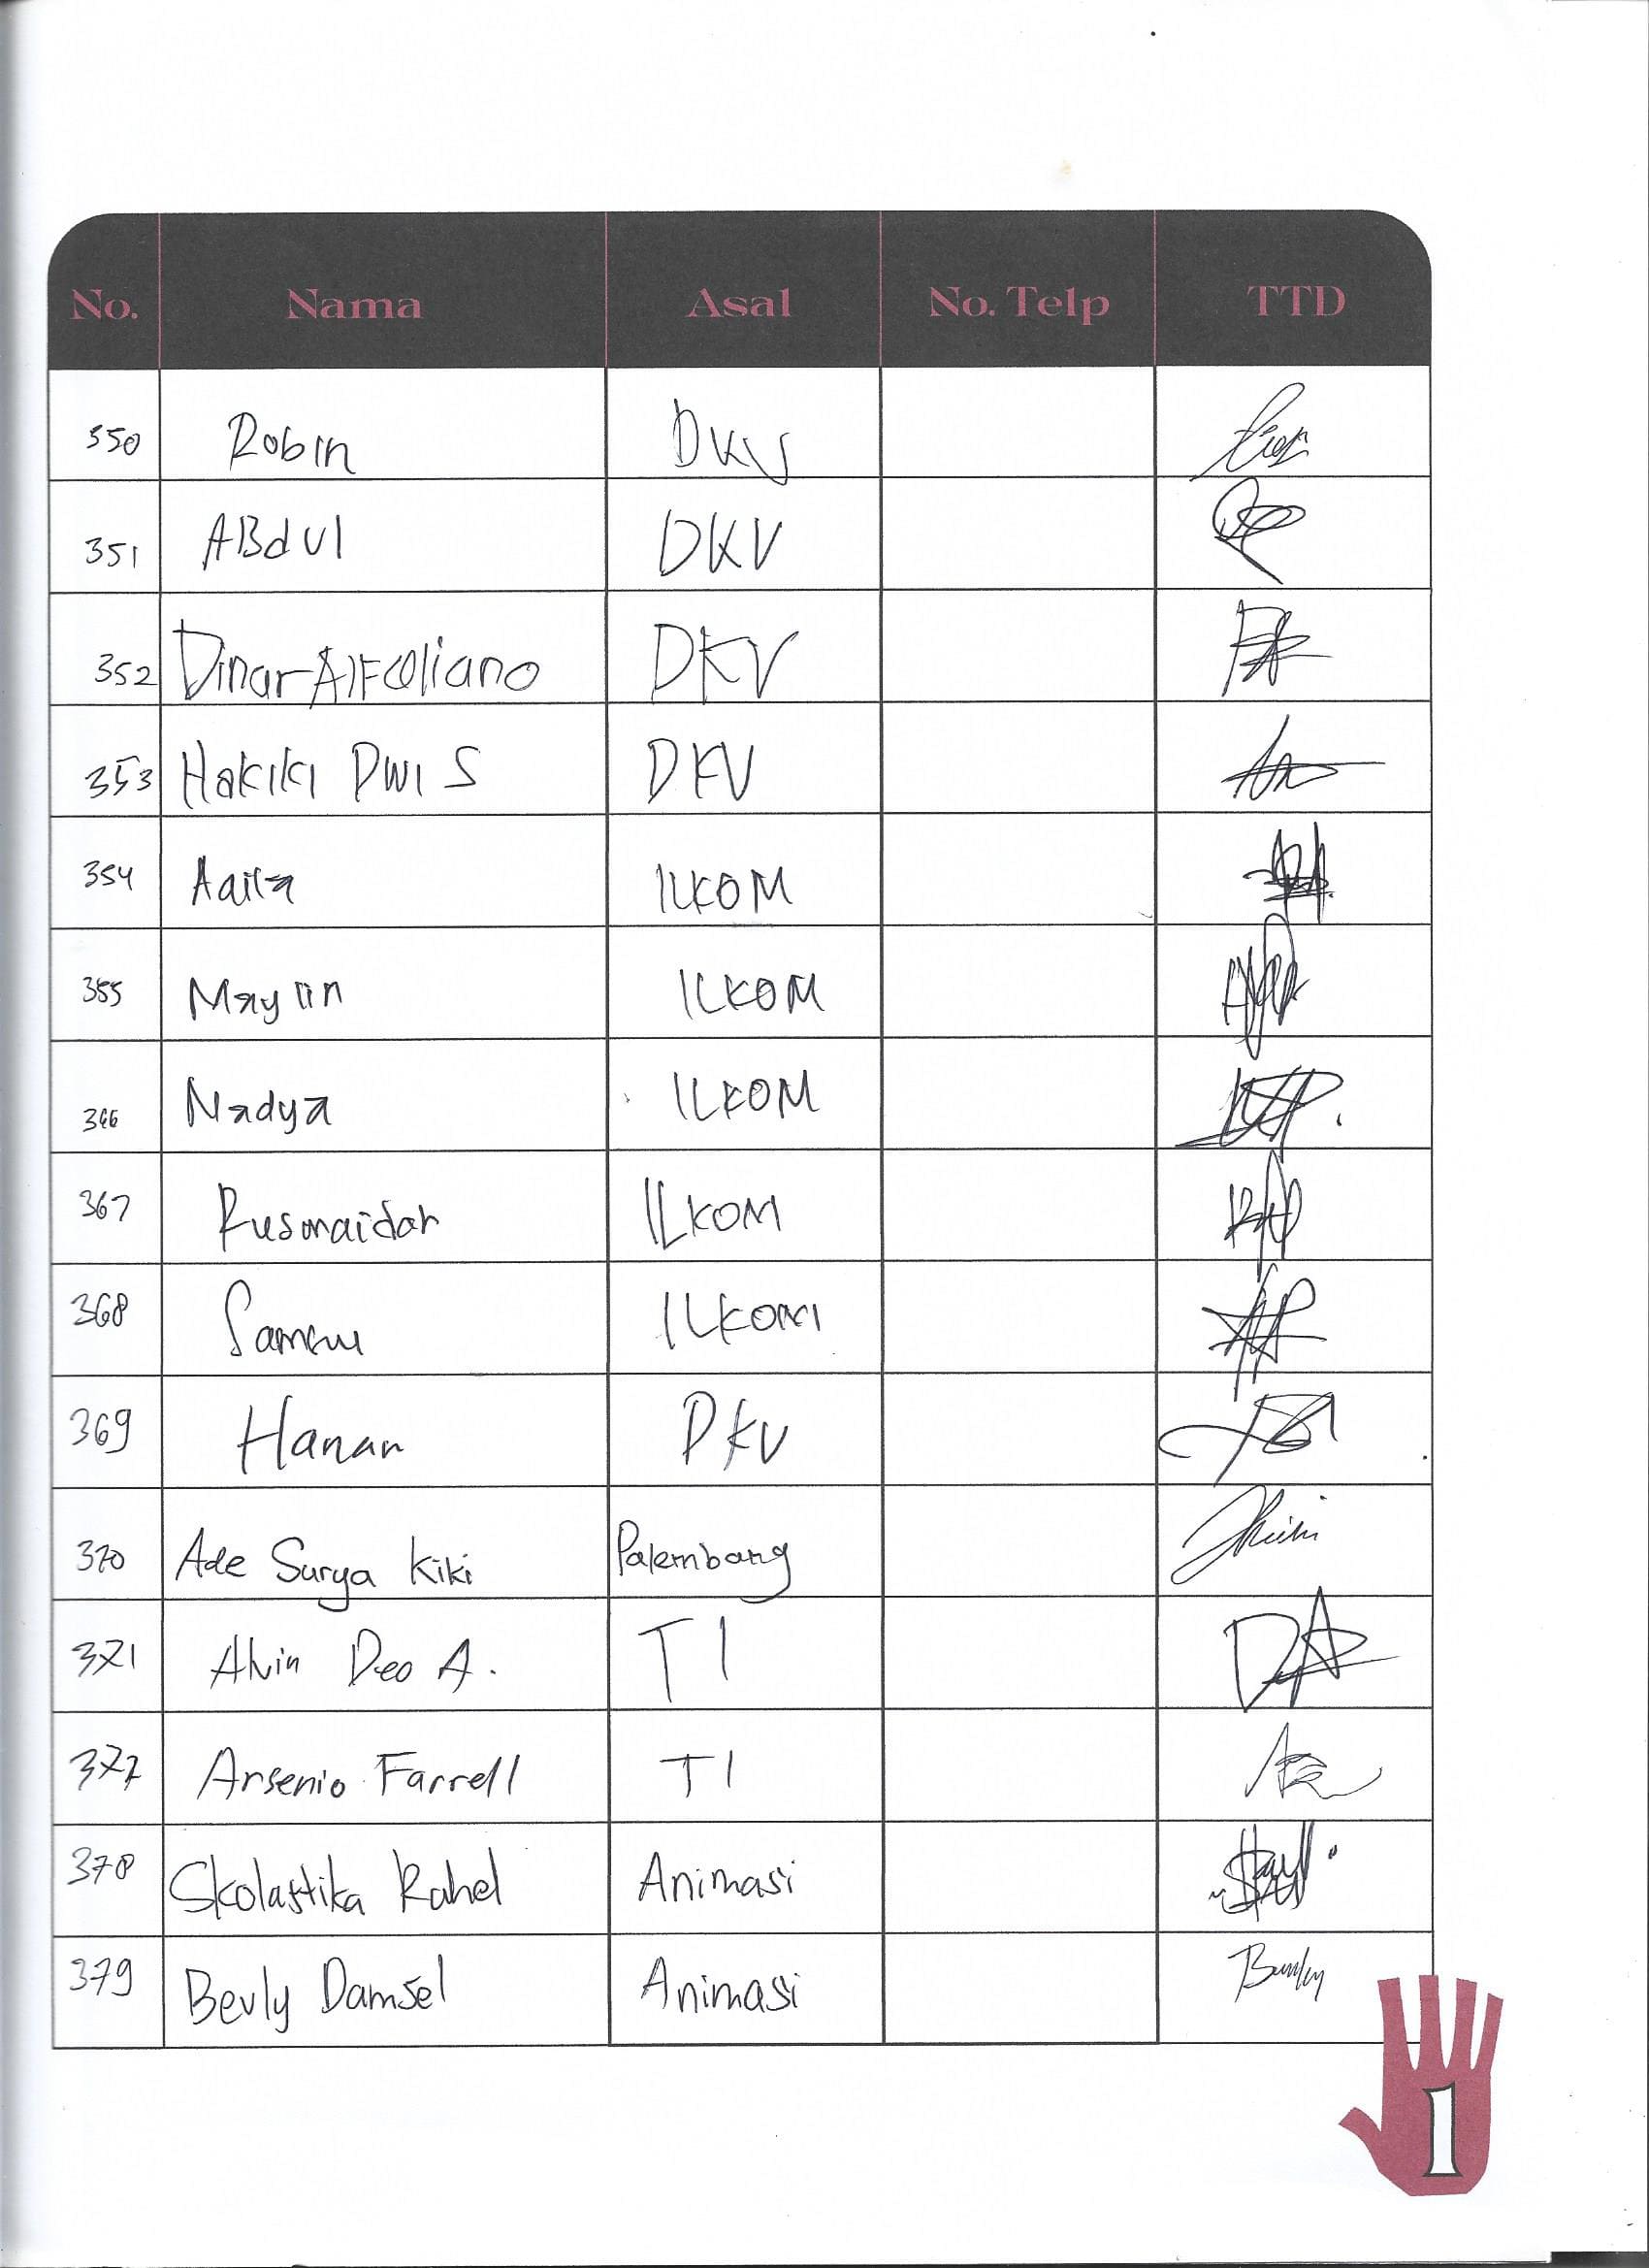 No. Nama Asal No. Telp TTD
350 Robin DKV
351 ABdul DKV
352 Dinar DKV
353 Hakiki Dwi S DKV
354 ILKOM
355 Maylin ILKOM
366 Nadya ILKOM
367 Rusmaidar ILKOM
368 ILKOM
369 Hanan DKV
370 Ade Surya Kiki Palembang
371 Alvin Deo A. TI
372 Arsenio Farrell TI
378 Skolastika Rahel Animasi
379 Bevly Damsel Animasi
1